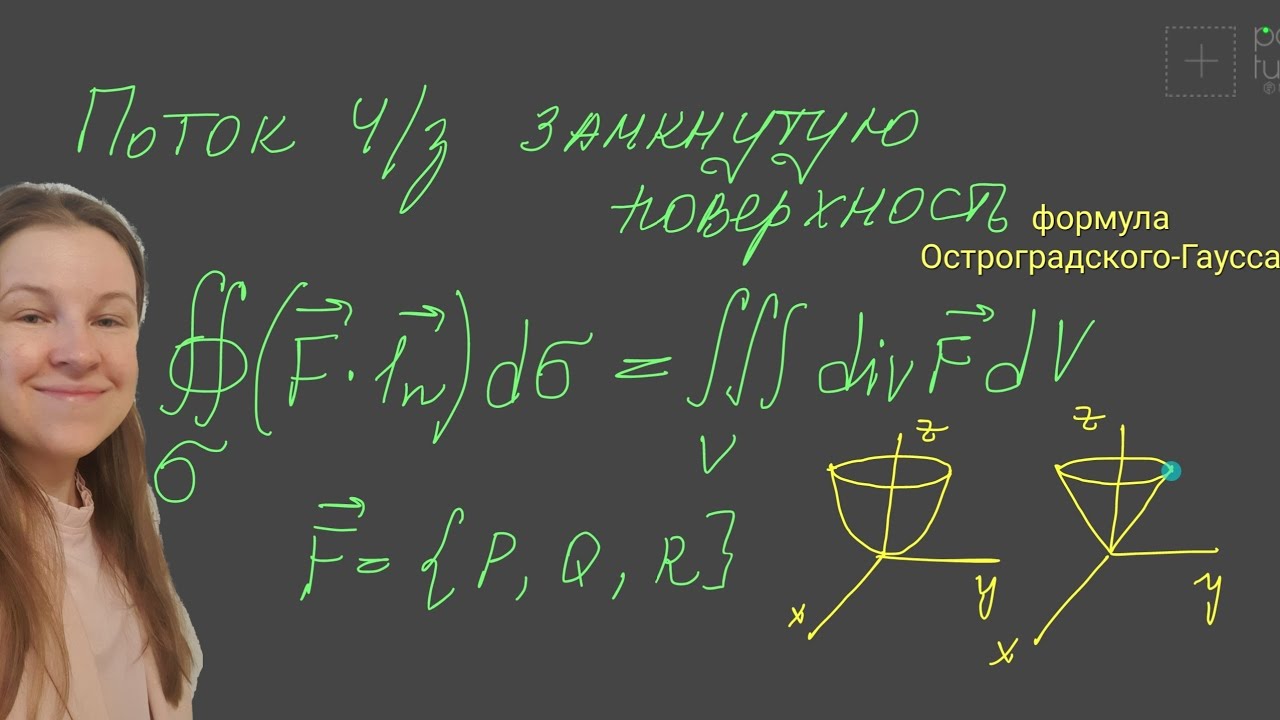 Поток ч/з замкнутую
поверхность
формула
Остроградского-Гаусса
∯(F⃗·1⃗n)dσ = ∭ div F⃗ dV
σ V
F⃗ = {P, Q, R}
z z
y y
x x